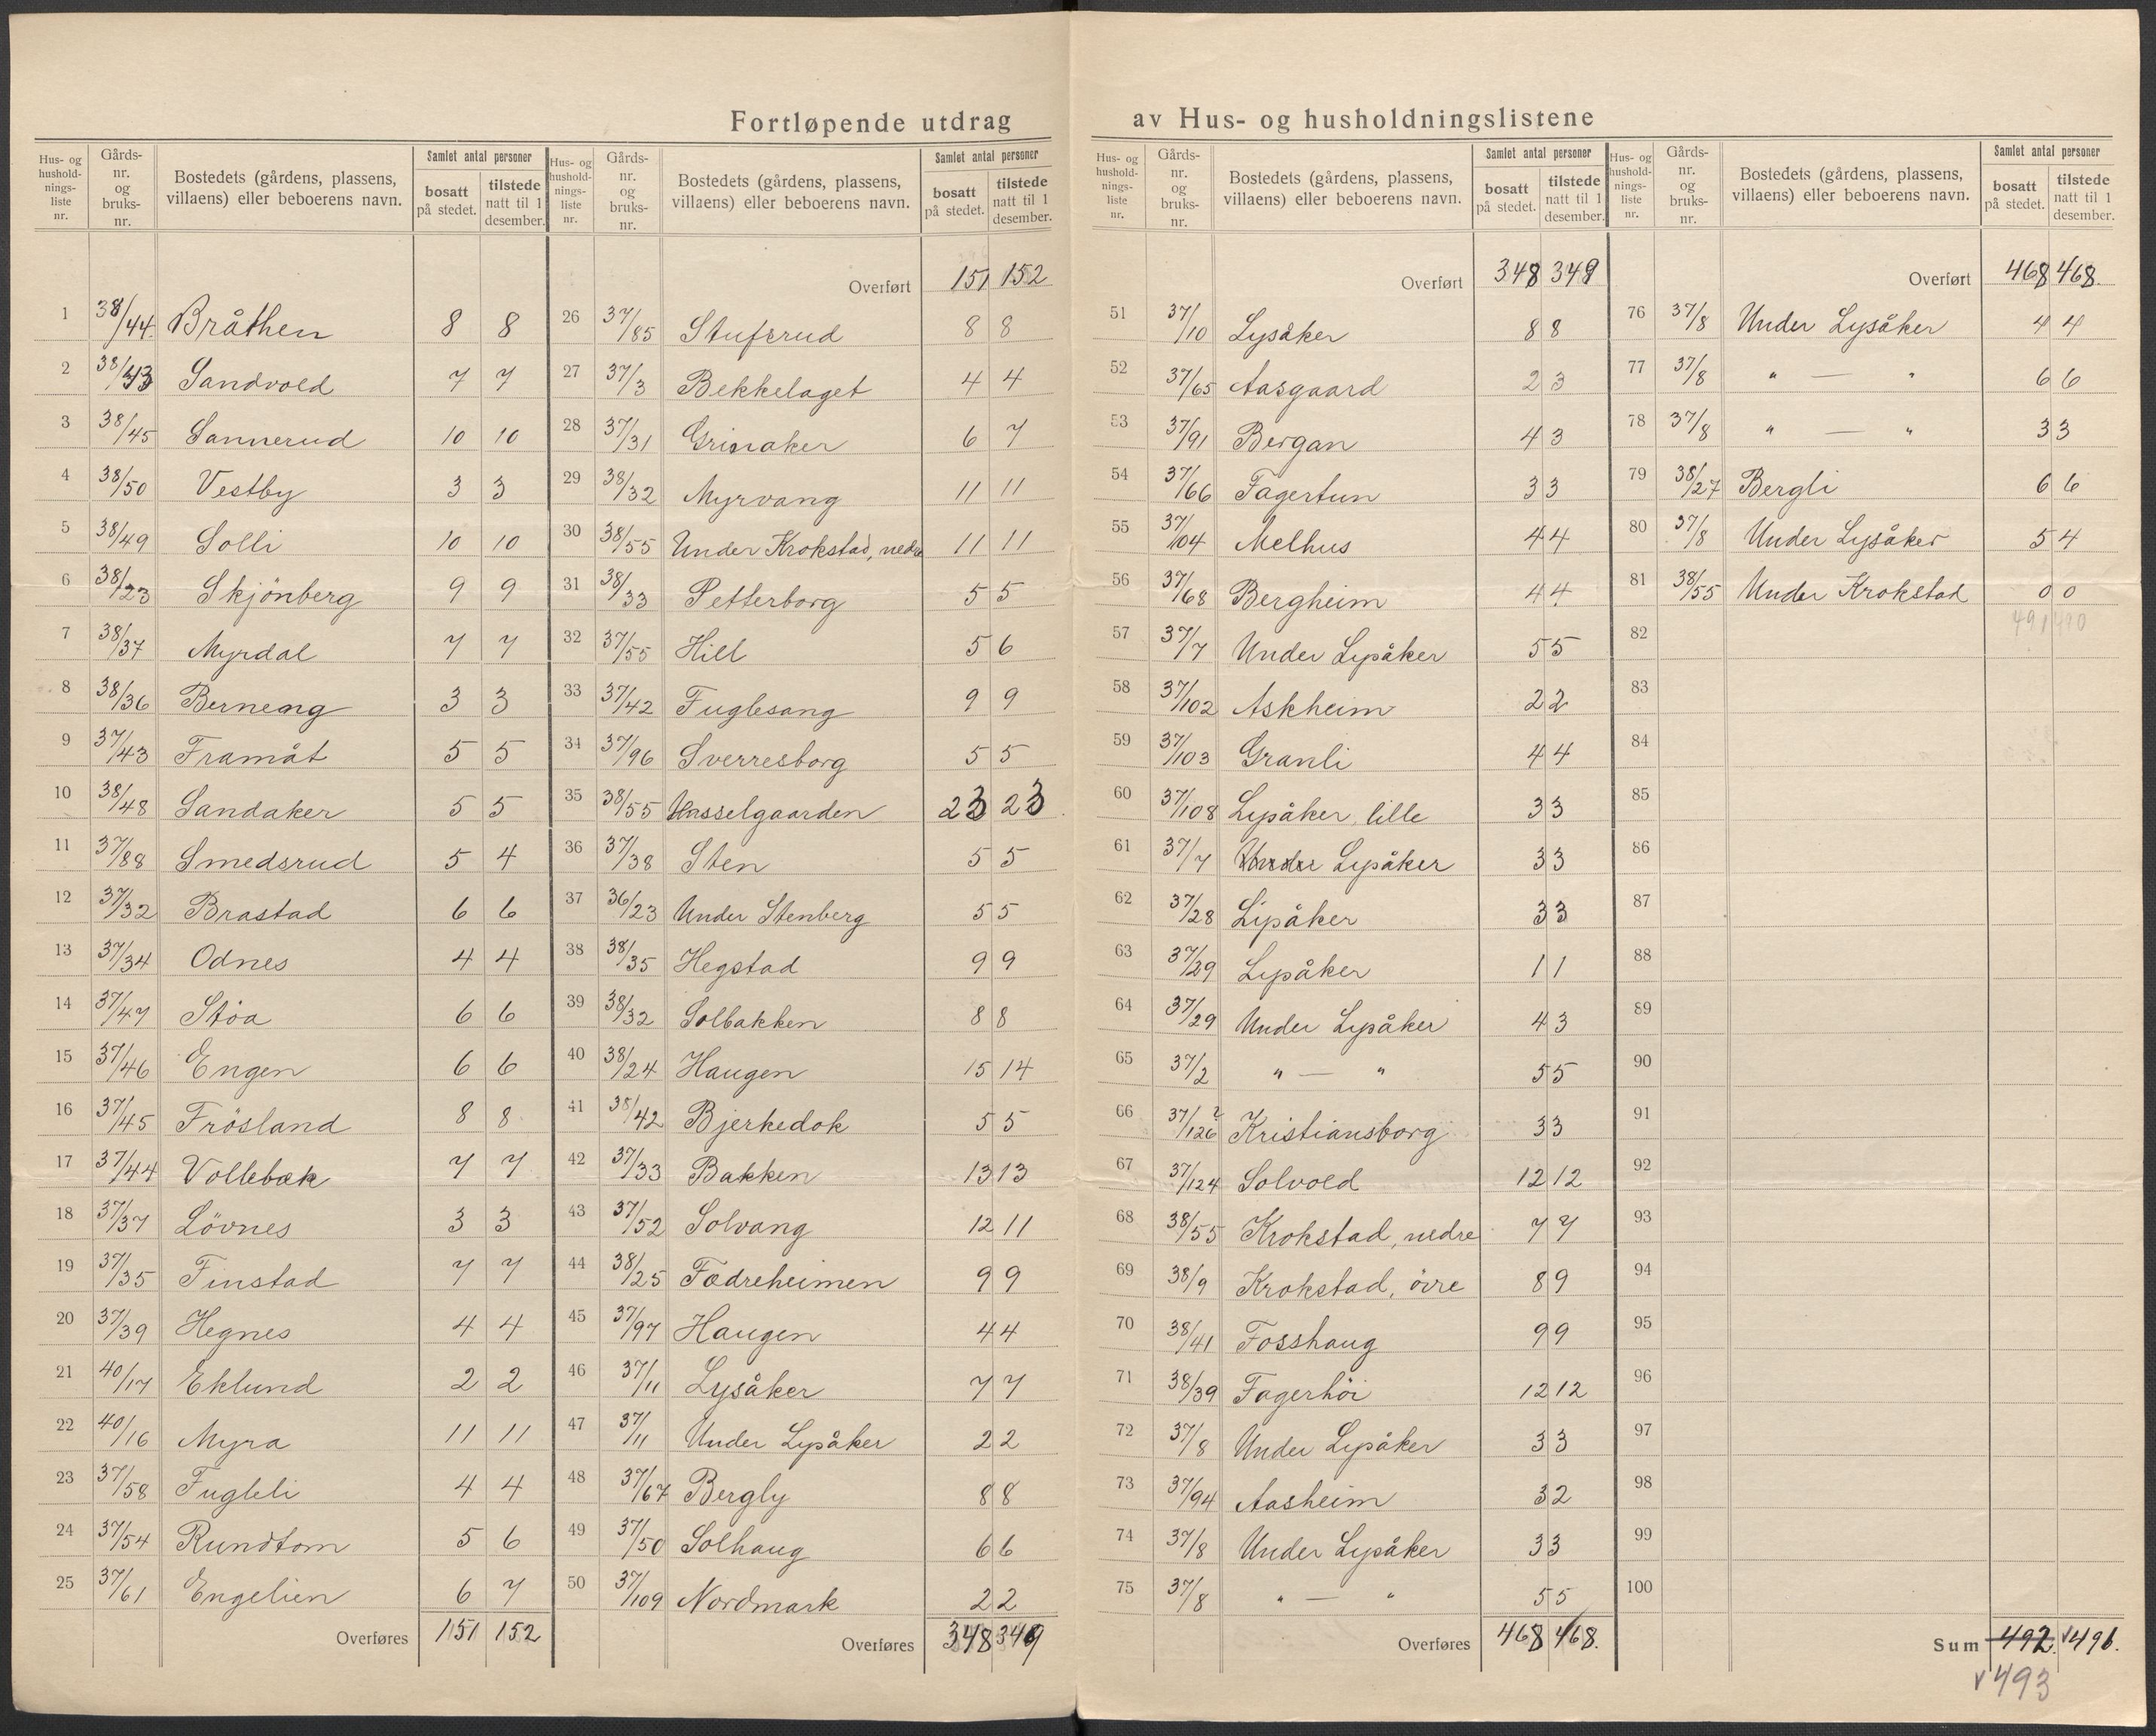 Fortløpende utdrag av Hus- og husholdningslistene
Hus- og husholdnings- liste nr. | Gårds- nr. og bruks- nr. | Bostedets (gårdens, plassens, villaens) eller beboerens navn. | Samlet antal personer | bosatt på stedet. | tilstede natt til 1 desember.
1 38/44 Bråthen 8 8
2 38/43 Sandvold 7 7
3 38/45 Sannerud 10 10
4 38/50 Vestby 3 3
5 38/49 Solli 10 10
6 38/23 Skjönberg 9 9
7 38/37 Myrdal 7 7
8 38/36 Berneng 3 3
9 37/43 Framåt 5 5
10 38/48 Sandaker 5 5
11 37/88 Smedsrud 5 4
12 37/32 Brastad 6 6
13 37/34 Odnes 4 4
14 37/47 Stöa 6 6
15 37/46 Engen 6 6
16 37/45 Frösland 8 8
17 37/44 Vollebæk 7 7
18 37/37 Lövnes 3 3
19 37/35 Finstad 7 7
20 37/39 Hegnes 4 4
21 40/17 Eklund 2 2
22 40/16 Myra 11 11
23 37/58 Fugleli 4 4
24 37/54 Rundtom 5 6
25 37/61 Engelien 6 7
Overføres 151 152
Hus- og husholdnings- liste nr. | Gårds- nr. og bruks- nr. | Bostedets (gårdens, plassens, villaens) eller beboerens navn. | Samlet antal personer | bosatt på stedet. | tilstede natt til 1 desember.
Overført 151 152
26 37/85 Stufsrud 8 8
27 37/3 Bekkelaget 4 4
28 37/31 Grinaker 6 7
29 38/32 Myrvang 11 11
30 38/55 Under Krokstad, nedre 11 11
31 38/33 Petterborg 5 5
32 37/55 Hill 5 6
33 37/42 Fuglesang 9 9
34 37/96 Sverresborg 5 5
35 38/55 Hasselgaarden 23 23
36 37/38 Sten 5 5
37 36/23 Under Stenberg 5 5
38 38/35 Hegstad 9 9
39 38/32 Solbakken 8 8
40 38/24 Haugen 15 14
41 38/42 Bjerkedok 5 5
42 37/33 Bakken 13 13
43 37/52 Solvang 12 11
44 38/25 Fædreheimen 9 9
45 37/97 Haugen 4 4
46 37/11 Lysåker 7 7
47 37/11 Under Lysåker 2 2
48 37/67 Bergly 8 8
49 37/50 Solhaug 6 6
50 37/109 Nordmark 2 2
Overføres 348 349
Hus- og husholdnings- liste nr. | Gårds- nr. og bruks- nr. | Bostedets (gårdens, plassens, villaens) eller beboerens navn. | Samlet antal personer | bosatt på stedet. | tilstede natt til 1 desember.
Overført 348 349
51 37/10 Lysåker 8 8
52 37/65 Aasgaard 2 3
53 37/91 Bergan 4 3
54 37/66 Fagertun 3 3
55 37/104 Melhus 4 4
56 37/68 Bergheim 4 4
57 37/7 Under Lysåker 5 5
58 37/102 Askheim 2 2
59 37/103 Granli 4 4
60 37/108 Lysåker, lille 3 3
61 37/7 Under Lysåker 3 3
62 37/28 Lysåker 3 3
63 37/29 Lysåker 1 1
64 37/29 Under Lysåker 4 3
65 37/2 " — " 5 5
66 37/126 ? Kristiansborg 3 3
67 37/124 Solvold 12 12
68 38/55 Krokstad, nedre 7 7
69 38/9 Krokstad, övre 8 9
70 38/41 Fosshaug 9 9
71 38/39 Fagerhöi 12 12
72 37/8 Under Lysåker 3 3
73 37/94 Aasheim 3 2
74 37/8 Under Lysåker 3 3
75 37/8 " — " 5 5
Overføres 468 468.
Hus- og husholdnings- liste nr. | Gårds- nr. og bruks- nr. | Bostedets (gårdens, plassens, villaens) eller beboerens navn. | Samlet antal personer | bosatt på stedet. | tilstede natt til 1 desember.
Overført 468 468.
76 37/8 Under Lysåker 4 4
77 37/8 " — " 6 6
78 37/8 " — " 3 3
79 38/27 Bergli 6 6
80 37/8 Under Lysåker 5 4
81 38/55 Under Krokstad 0 0
82 491 490
83
84
85
86
87
88
89
90
91
92
93
94
95
96
97
98
99
100
Sum 492. v 491.
v 493